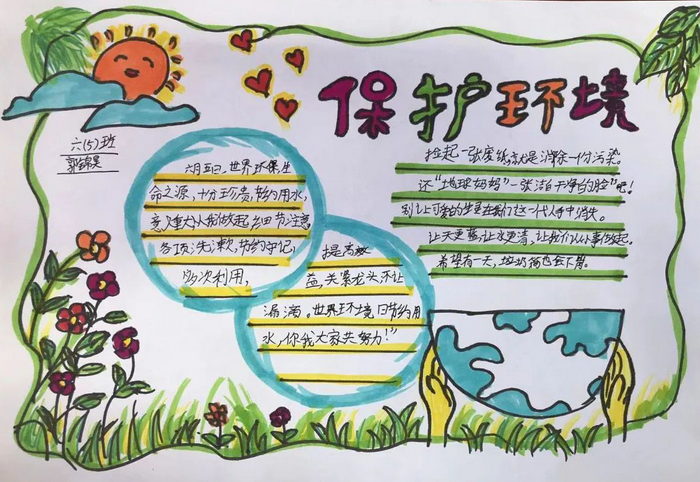 保护环境
六(5)班
六月五日,世界环保生
命之源,十分珍贵节约用水,
意义重大从我做起,细节注意,
各项洗漱,节约牢记,
多次利用,
提高效
益,关紧龙头,不让
漏滴。世界环境日节约用
水,你我大家共努力!”
捡起一张废纸,就是消除一份污染。
还“地球妈妈”一张洁白干净的脸”吧!
别让可爱的生
在我们这一代人手中消失。
让天更蓝,让水更清,让我们从小事做起。
希望有一天,垃圾桶也会下岗。